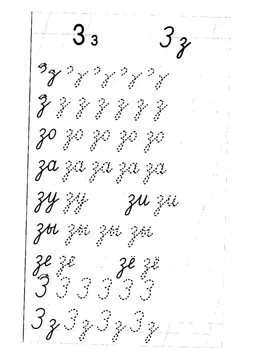 З з З з
з з з з з з з
зо зо зо зо зо
за за за за за
зу зу зи зи
зы зы зы зы
зе зе зё зё
З З З З З З
З з З з З з З з